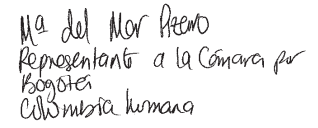 Mª del Mar Pizarro
Representante a la Cámara por
Bogotá
Colombia humana